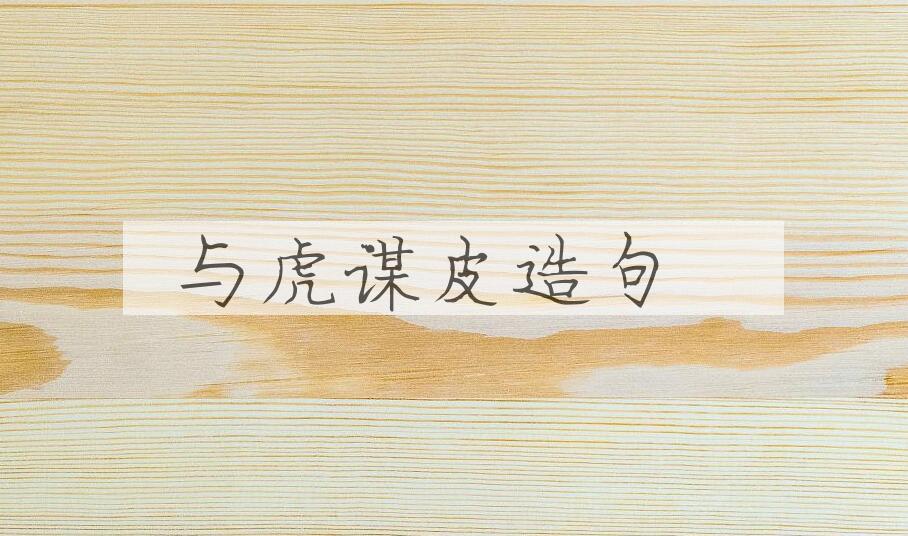 与虎谋皮造句